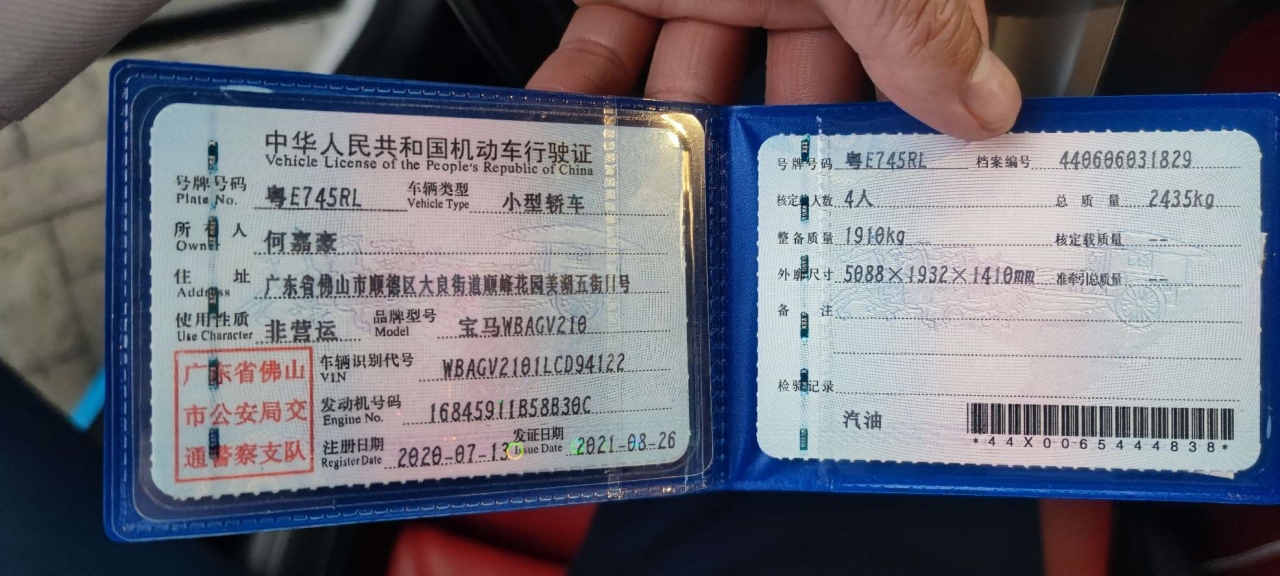 中华人民共和国机动车行驶证
Vehicle License of the People's Republic of China
号牌号码 粤E745RL 车辆类型 小型轿车
Plate No. Vehicle Type
所有人 何嘉豪
Owner
住址 广东省佛山市顺德区大良街道顺峰花园美湖五街11号
Address
使用性质 非营运 品牌型号 宝马WBAGV210
Use Character Model
车辆识别代号 WBAGV2101LCD94122
VIN
发动机号码 16845911B58B30C
Engine No.
注册日期 2020-07-13 发证日期 2021-08-26
Register Date Issue Date
广东省佛山
市公安局交
通警察支队
号牌号码 粤E745RL 档案编号 440606031829
核定载人数 4人 总质量 2435kg
整备质量 1910kg 核定载质量 --
外廓尺寸 5088×1932×1410mm 准牵引总质量 --
备注
检验记录
汽油
*44X0065444838*